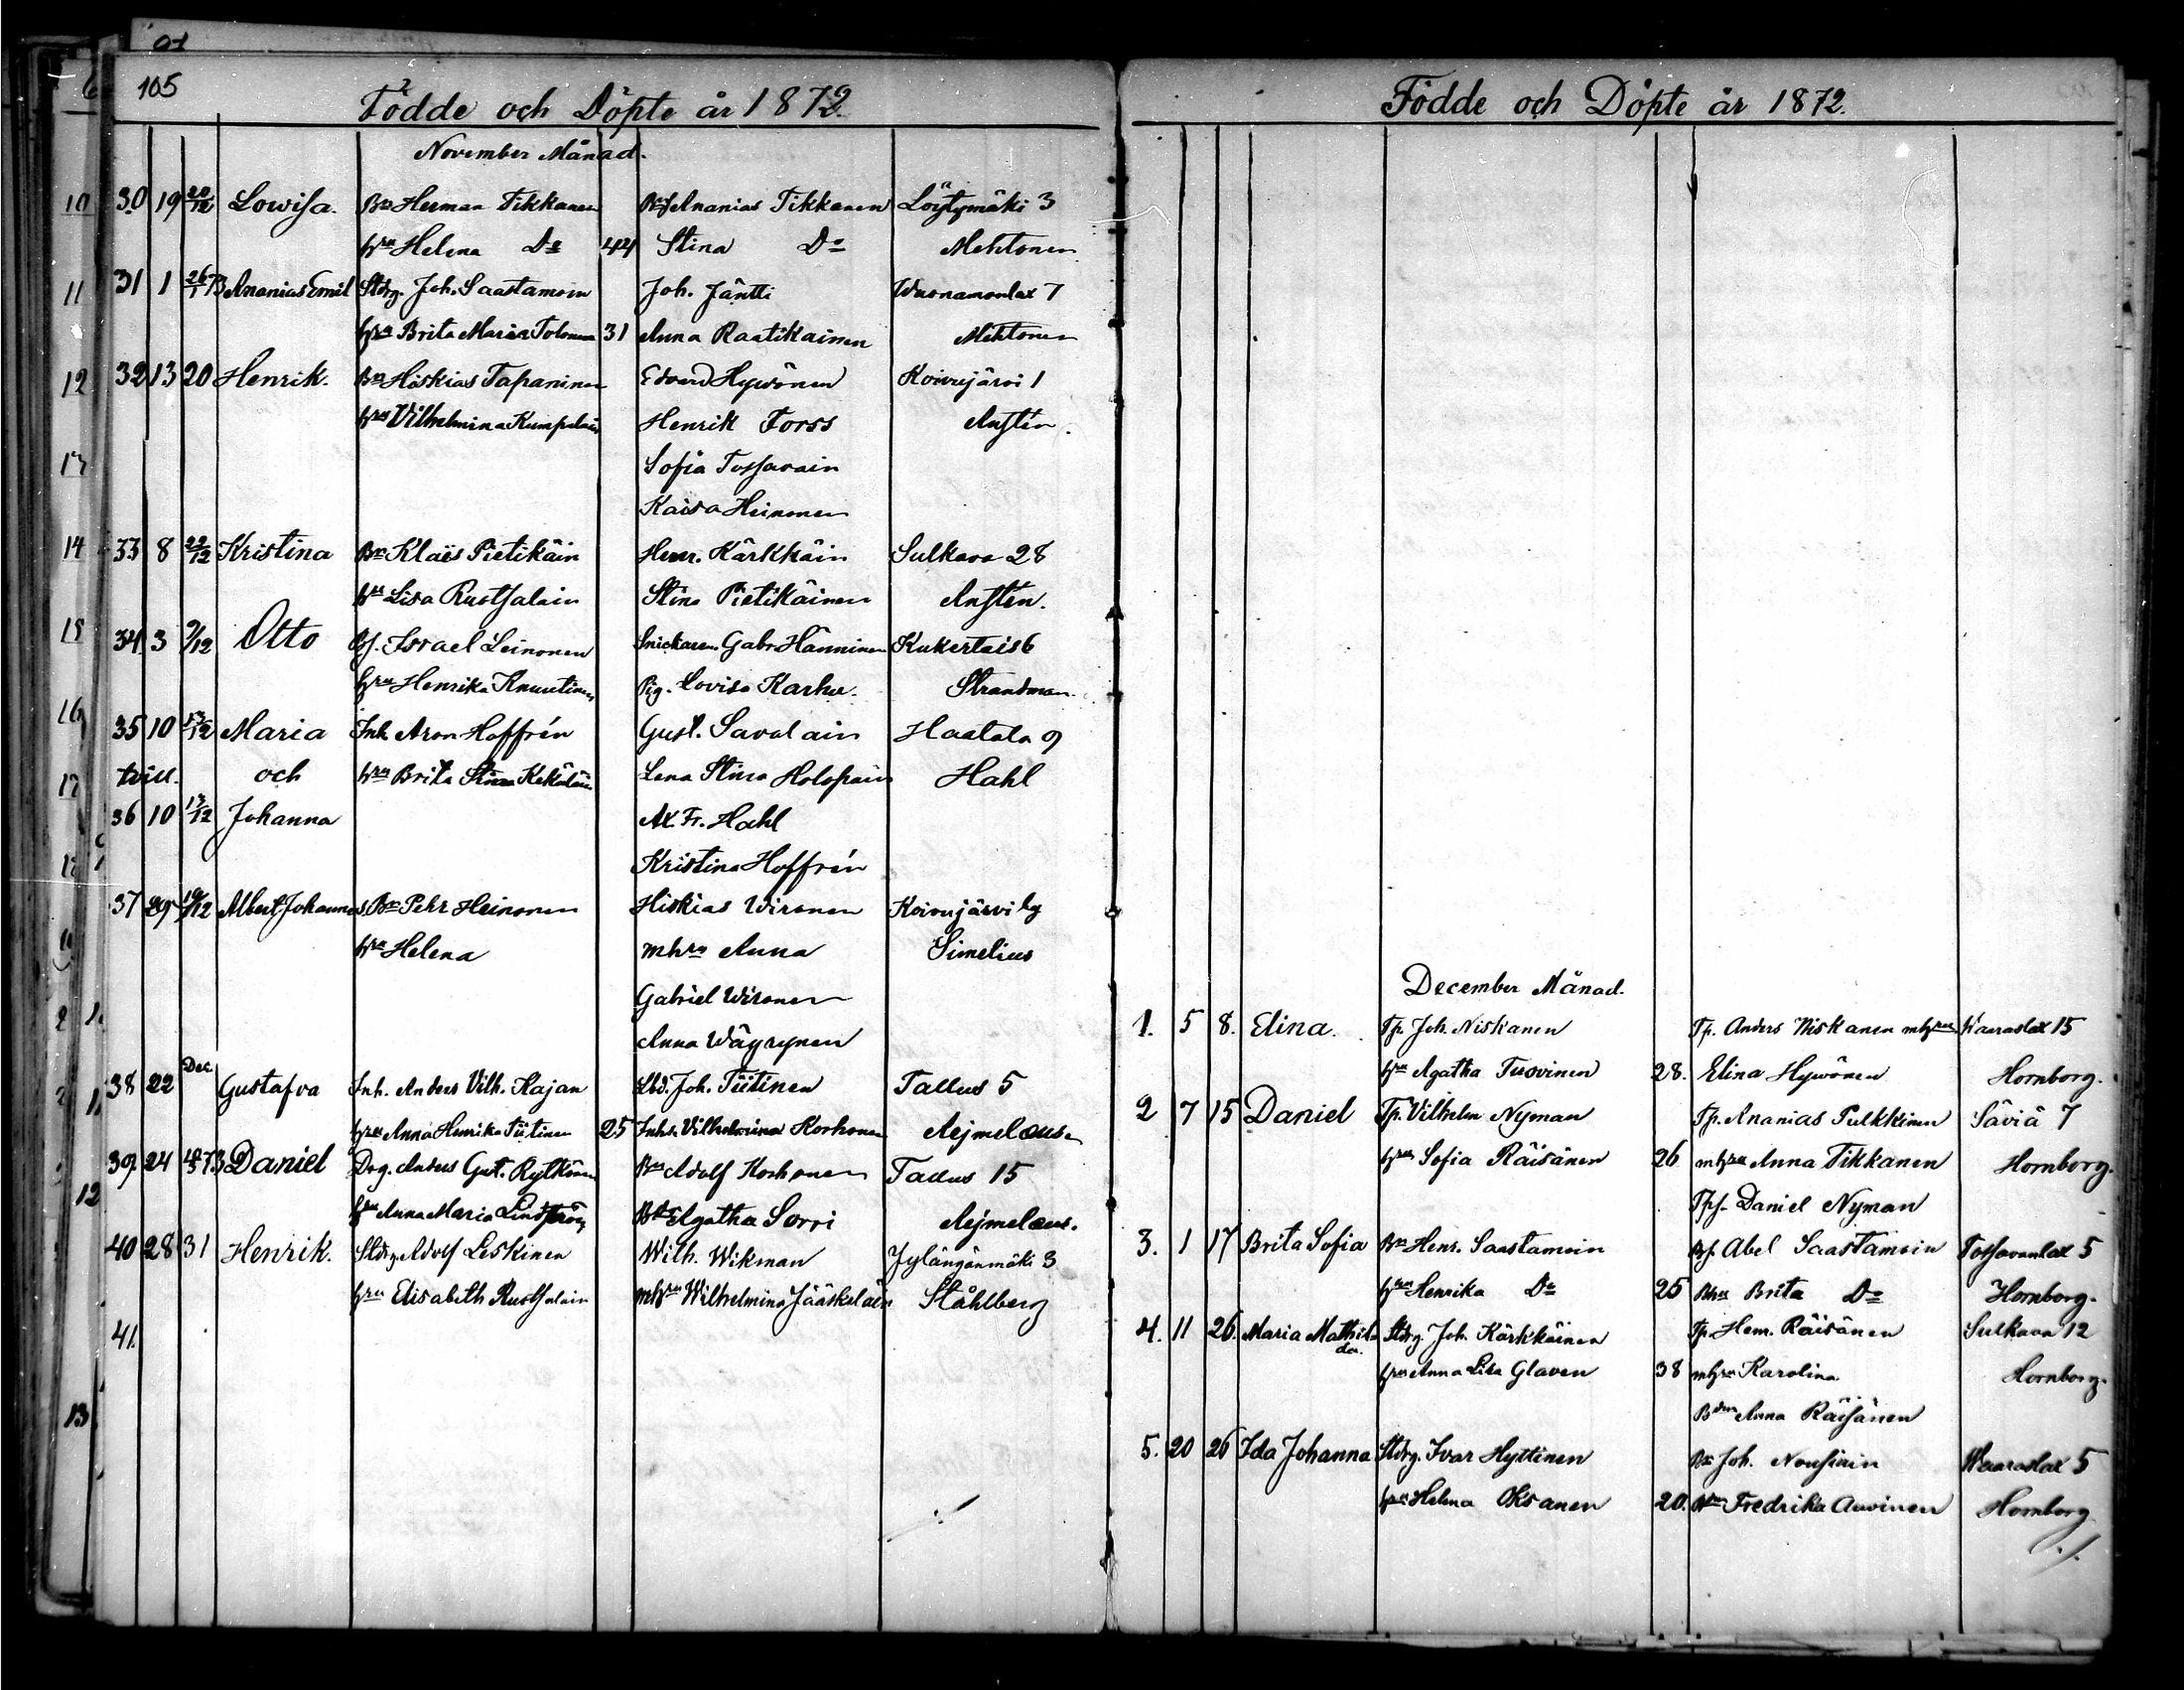 105
Födde och Döpte år 1872.
November Månad.
30 19 20/12 Lowisa. Bn Herman Tikkanen Bs Ananias Tikkanen Löytymäki 3
hru Helena Do 44 Stina Do Mehtonen
31 1 26/1 73 Ananias Emil Stdrg. Joh. Saastamoin Joh. Jäntti Wuonamonlax 7
hru Brita Maria Tolonen 31 Anna Raatikainen Mehtonen
32 13 20 Henrik. Bn Hiskias Tapaninen Edvard Hywönen Koivujärvi 1
hru Vilhelmina Kumpulain Henrik Forss Austén.
Sofia Tossavain
Kaisa Heinonen
33 8 22/12 Kristina Bn Klaes Pietikäin Henr. Kärkkäin Sulkava 28
hru Lisa Ruotsalain Stina Pietikäinen Austén.
34. 3 9/12 Otto Bs. Israel Leinonen Snickaren Gabr Hänninen Kukertais 6
hru Henrika Knuutinen Pig. Lovisa Karhu. Strandman.
35 10 13/12 Maria Inh. Aron Hoffrén Gust. Savolain Haatala 9
tvill. och hru Brita Stina Kekäläin Lena Stina Holopain Hahl
36 10 13/12 Johanna Ax. Fr. Hahl
Kristina Hoffrén
37 29 19/12 Albert Johannes. Bn Pehr Heinonen Hiskias Wironen Koivujärvi by
hru Helena mhru Anna Simelius
Gabriel Wironen
Anna Wäyrynen
38 22 Dec Gustafva Inh. Anders Vilh. Kajan Lbd. Joh. Tiitinen Tallus 5
hru Anna Henrika Tiitinen 25 Inhs. Vilhelmina Korhonen Aejmelæus.
39. 24 73 Daniel Drg. Anders Gust. Rytkönen Bn Adolf Korhonen Tallus 15
hru Anna Maria Lindström Agatha Sorri Aejmelæus.
40 28 31 Henrik. Stdrg. Adolf Leskinen Wilh. Wikman Jylängänmäki 3
hru Elisabeth Ruotsalain mhru Wilhelmina Jääskeläin Ståhlberg
41.
Födde och Döpte år 1872.
December Månad.
1. 5 8. Elina. Tp. Joh. Niskanen Tp. Anders Niskanen mhru Waaraslax 15
hru Agatha Tuovinen 28. Elina Hywönen Hornborg.
2 7 15 Daniel Tp. Vilhelm Nyman Tp. Ananias Pulkkinen Säviä 7
hru Sofia Räisänen 26 mhru Anna Tikkanen Hornborg.
Tps. Daniel Nyman
3. 1 17 Brita Sofia Bn Henr. Saastamoin Bs. Abel Saastamoin Tossavanlax 5
hru Henrika Do 25 Bhru Brita Do Hornborg.
4. 11 26. Maria Mathil- Stdrg. Joh. Kärkkäinen Tp. Henr. Räisänen Sulkava 12
da.
hru Anna Lisa Glaven 38 mhru Karolina Hornborg.
Bdr Anna Räisänen
5. 20 26 Ida Johanna Stdrg. Ivar Hyttinen Bn Joh. Nousiain Waaraslax 5
hru Helena Oksanen 20. Fredrika Auvinen Hornborg